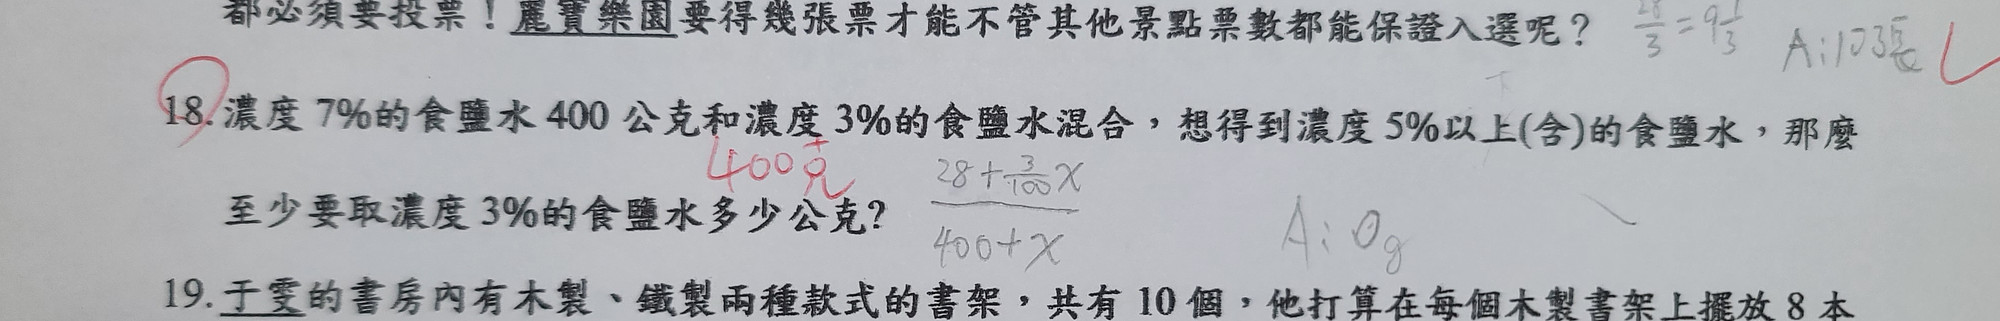 都必須要投票！麗寶樂園要得幾張票才能不管其他景點票數都能保證入選呢？ 28/3=9 1/3 A:10張
18.濃度 7%的食鹽水 400 公克和濃度 3%的食鹽水混合，想得到濃度 5%以上(含)的食鹽水，那麼
400克
至少要取濃度 3%的食鹽水多少公克?
28+3/100x
400+x
A:0g
19.于雯的書房內有木製、鐵製兩種款式的書架，共有 10 個，他打算在每個木製書架上擺放 8 本